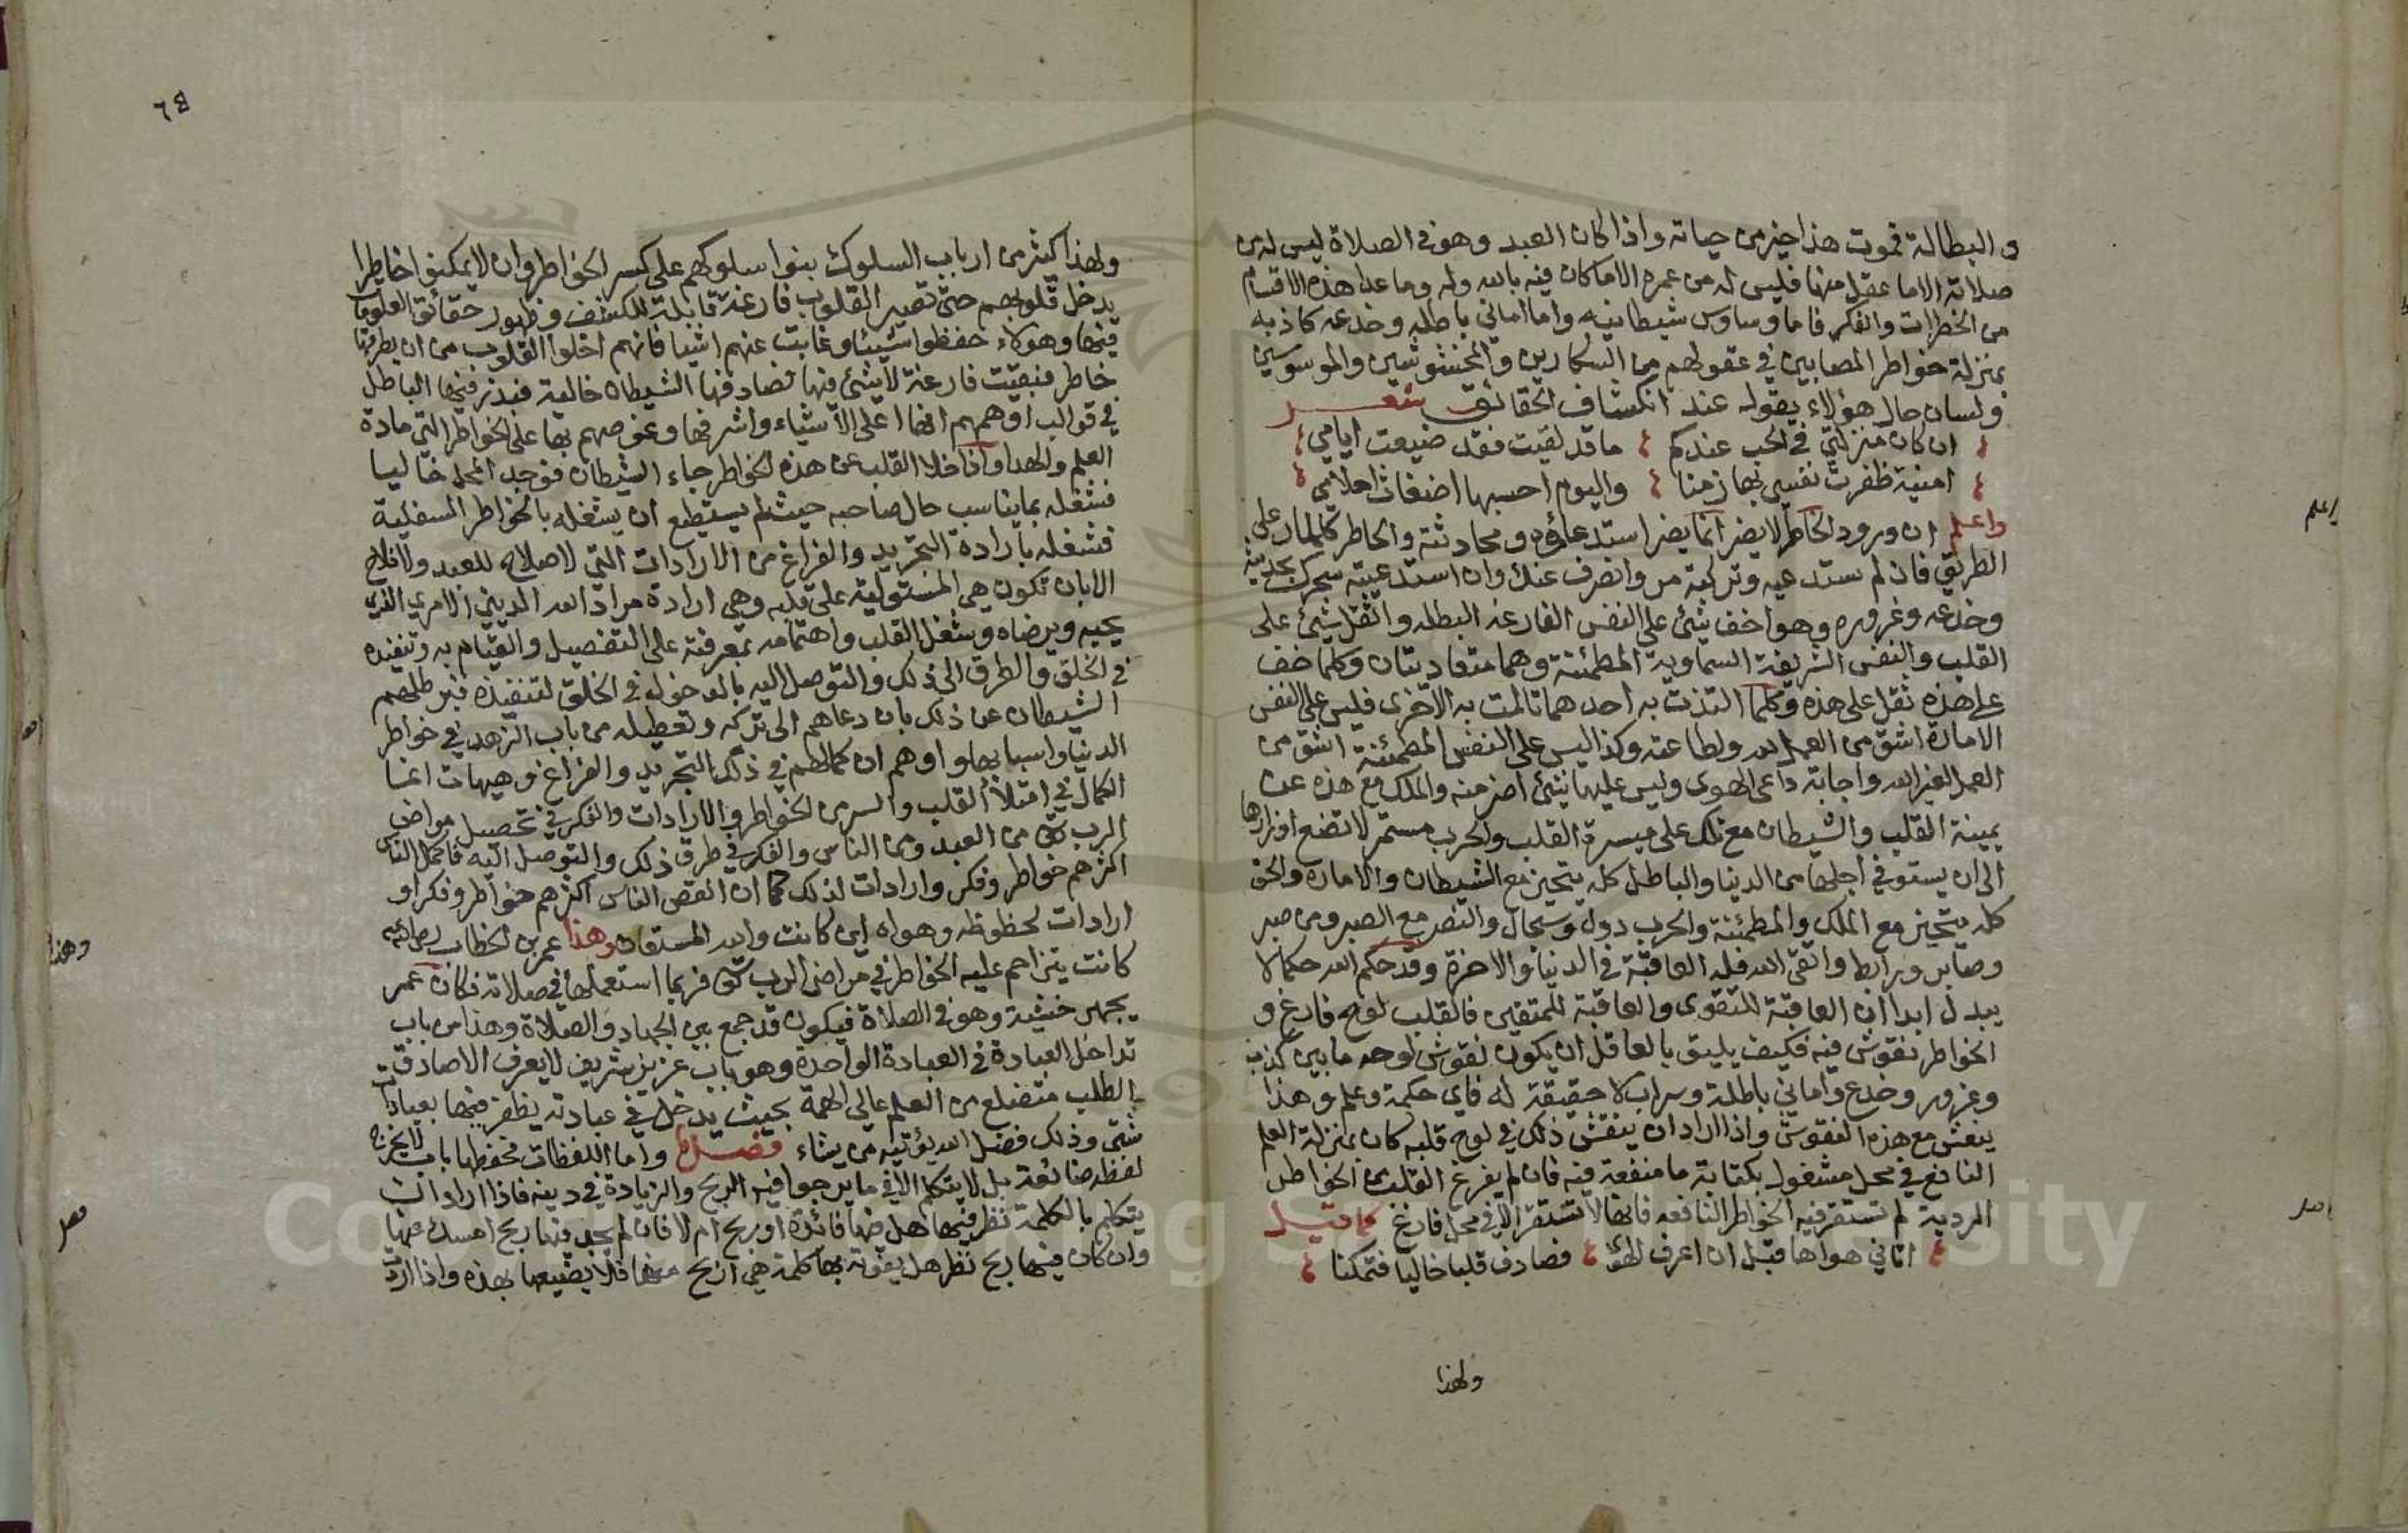 و البطالة فموت هذا خير من حياته واذا كان العبد وهو في الصلاة ليس له من
صلاته الا ما عقل منها فليس له من عمره الا ما كان فيه بالله وله وما عدا هذه الاقسام
من الخطرات والفكر فاما وساوس شيطانيه واما اماني باطله وخدعه كاذبه
بمنزلة خواطر المصابين في عقولهم من السكارين والمحشوشين والموسوسين
ولسان حال هؤلاء يقوله عند انكشاف الحقائق شعر
ان كان منزلتي في الحب عندكم ما قد لقيت فقد ضيعت ايامي
امنية ظفرت نفسي بها زمنا واليوم احسبها اضغاث احلامي
واعلم ان ورود الخاطر لا يضر انما يضر استدعاؤه ومحادثته والخاطر كالمار على
الطريق فان لم تستدعيه وتركته مر وانصرف عنك وان استدعيته سحرك بحديثه
وخدعه وغروره وهو اخف شئ على النفس الفارغه البطله واثقل شئ على
القلب والنفس الشريفة السماوية المطمئنة وهما متعاديتان وكلما خف
على هذه ثقل على هذه وكلما التذت به احدهما تالمت به الاخرى فليس على النفس
الامارة اشق من العمل لله ولطاعته وكذا ليس على النفس المطمئنة اشق من
العمل لغير الله واجابة داعى الهوى وليس عليها شئ اضر منه والملك مع هذه عن
يمينة القلب والشيطان مع تلك على ميسرة القلب والحرب مستمر لا تضع اوزارها
الى ان يستوفي اجلها من الدنيا والباطل كله يتحيز مع الشيطان والامارة والحق
كله يتحيز مع الملك والمطمئنة والحرب دول وسجال والنصر مع الصبر ومن صبر
وصابر ورابط واتقى الله فله العاقبة في الدنيا والاخرة وقد حكم الله حكما لا
يبدل ابدا ان العاقبة للتقوى والعاقبة للمتقين فالقلب لوح فارغ و
الخواطر نقوش فيه فكيف يليق بالعاقل ان يكون نقوش لوحه ما بين كذب
وغرور وخدع واماني باطلة وسراب لا حقيقة له فاي حكمة وعلم وهذا
ينقش مع هذه النقوش واذا اراد ان ينقش ذلك في لوح قلبه كان بمنزلة العلم
النافع في محل مشغول بكتابة ما منفعة فيه فان لم يفرغ القلب من الخواطر
المردية لم تستقر فيه الخواطر النافعه فانها لا تستقر الا في محل فارغ كما قيل
اتاني هواها قبل ان اعرف الهوى فصادف قلبا خاليا فتمكنا
ولهذا
اعلم
٦٤
ولهذا كثير من ارباب السلوك بنوا سلوكهم على كسر الخواطر وان لا يمكنوا خاطرا
يدخل قلوبهم حتى تصير القلوب فارغة قابلة للكشف وظهور حقائق العلويات
فيها وهولاء حفظوا شيئا وغابت عنهم اشيا فانهم اخلوا القلوب من ان يطرقها
خاطر فبقيت فارغة لا شئ فيها فصادفها الشيطان خالية فبذر فيها الباطل
في قوالب اوهمهم انها اعلى الاشياء واشرفها وعوضهم بها على الخواطر التي مادة
العلم والهدا واذا خلا القلب عن هذه الخواطر جاء الشيطان فوجد المحل خاليا
فشغله بما يناسب حال صاحبه حيث لم يستطيع ان يشغله بالخواطر السفلية
فشغله بارادة التجريد والفراغ من الارادات التي لا صلاح للعبد ولا فلاح
الا بان تكون هي المستولية على قلبه وهي ارادة مراد الله الديني الامري الذي
يحبه ويرضاه وشغل القلب واهتمامه بمعرفته على التفصيل والقيام به وتنفيذه
في الخلق والطرق الى ذلك والتوصل اليه بالدخول في الخلق لتنفيذه فبرطلهم
الشيطان عن ذلك بان دعاهم الى تركه وتعطيله من باب الزهد في خواطر
الدنيا واسبابها واوهم ان كمالهم في ذلك التجريد والفراغ وهيهات انما
الكمال في امتلأ القلب والسر من الخواطر والارادات والفكر في تحصيل مراضي
الرب تعالى من العبد ومن الناس والفكر في طرق ذلك والتوصل اليه فاكمل الناس
اكثرهم خواطر وفكر وارادات لذلك كما ان انقص الناس اكثرهم خواطر وفكر او
ارادات لحظوظه وهواه اين كانت والله المستعان وهذا عمر بن الخطاب رضي الله عنه
كانت يتزاحم عليه الخواطر في مراضي الرب تعالى فربما استعملها في صلاته فكان عمر
يجهز خشية وهو في الصلاة فيكون قد جمع بين الجهاد والصلاة وهذا من باب
تداخل العبادة في العبادة الواحدة وهو باب عزيز شريف لا يعرف الا صادق
الطلب متضلع من العلم عالي الهمة بحيث يدخل في عبادته يظفر فيها بعبادات
شتى وذلك فضل الله يؤتيه من يشاء فصل واما اللفظات فحفظها بان لا يخرج
لفظه ضائعة بل لا يتكلم الا في ما يرجوا فيه الربح والزيادة في دينه فاذا اراد ان
يتكلم بالكلمة نظر فيها هل فيها فائدة او ربح ام لا فان لم يجد فيها ربح امسك عنها
وان كان فيها ربح نظر هل يفوته بها كلمة هي اربح منها فلا يضيعها بهذه واذا اردت
وهذا
فصل